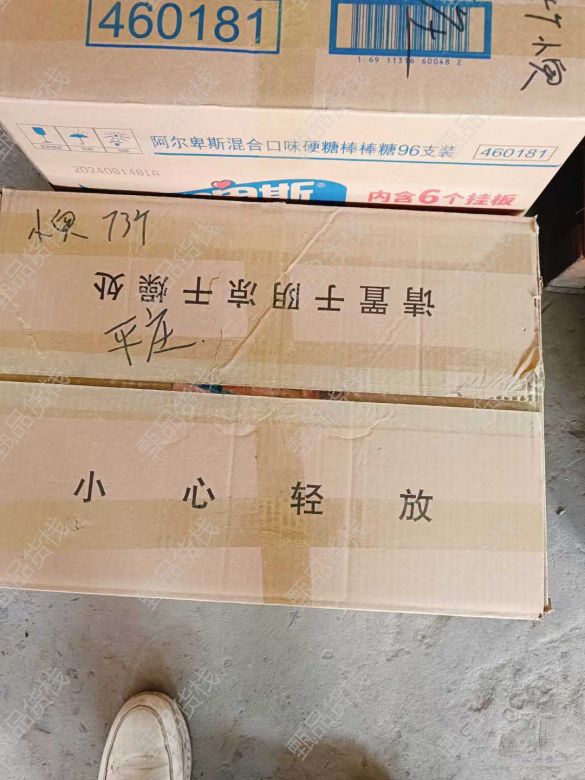 460181
1 69 11316 60048 2
小奥
阿尔卑斯混合口味硬糖棒棒糖96支装
460181
20240814B1A
卑斯®
内含6个挂板
737
请置于阴凉干燥处
平庄
小心轻放
甄品货栈